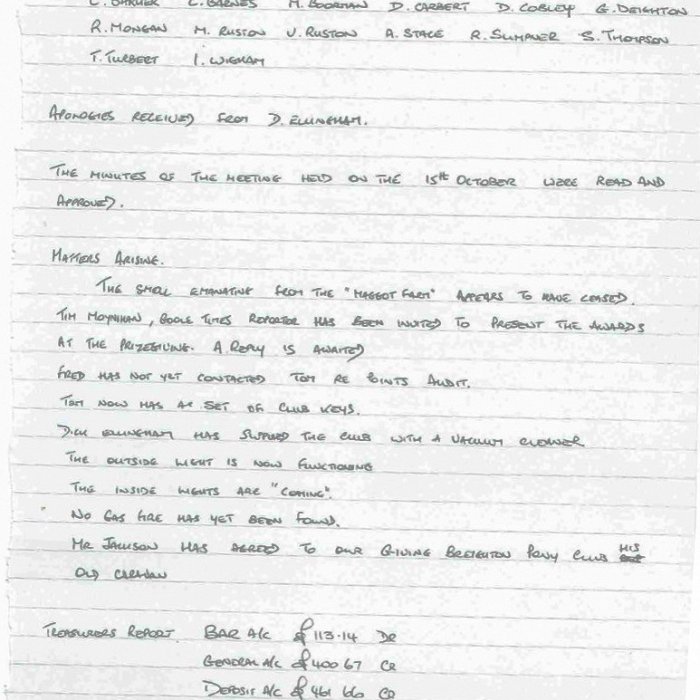 C. BARKER C. BARNES M. BOORMAN D. CARBERT D. COBLEY G. DEIGHTON
R. MONGAN M. RUSTON V. RUSTON A. STACE R. SUMPNER S. THOMPSON
T. TURBERT I. WIGHAM
APOLOGIES RECEIVED FROM D. ELLINGHAM.
THE MINUTES OF THE MEETING HELD ON THE 15th OCTOBER WERE READ AND
APPROVED.
MATTERS ARISING.
THE SMELL EMANATING FROM THE "MAGGOT FARM" APPEARS TO HAVE CEASED.
TIM MOYNIHAN, GOOLE TIMES REPORTER HAS BEEN INVITED TO PRESENT THE AWARDS
AT THE PRIZEGIVING. A REPLY IS AWAITED
FRED HAS NOT YET CONTACTED TOM RE POINTS AUDIT.
TOM NOW HAS A SET OF CLUB KEYS.
DICK ELLINGHAM HAS SUPPLIED THE CLUB WITH A VACUUM CLEANER
THE OUTSIDE LIGHT IS NOW FUNCTIONING
THE INSIDE LIGHTS ARE "COMING".
NO GAS FIRE HAS YET BEEN FOUND.
MR JACKSON HAS AGREED TO OUR GIVING BREIGHTON PONY CLUB HIS
OLD CARAVAN
TREASURERS REPORT BAR A/C £113.14 DR
GENERAL A/C £400 67 CR
DEPOSIT A/C £461 66 CR